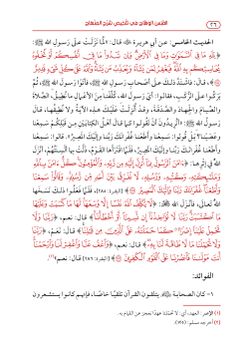 ٢٦
الحديث الخامس: عن أبي هريرة ﷺ قال: «لما نزلت على رسول الله ﷺ:
﴿لِلَّهِ مَا فِي السَّمَاوَاتِ وَمَا فِي الْأَرْضِ وَإِن تُبْدُوا مَا فِي أَنفُسِكُمْ أَوْ تُخْفُوهُ
يُحَاسِبْكُم بِهِ اللَّهُ فَيَغْفِرُ لِمَن يَشَاءُ وَيُعَذِّبُ مَن يَشَاءُ وَاللَّهُ عَلَى كُلِّ شَيْءٍ قَدِيرٌ﴾
قال: فاشتد ذلك على أصحاب رسول الله ﷺ، فأتوا رسول الله ﷺ
ثم بركوا على الركب، فقالوا: أي رسول الله، كلفنا من الأعمال ما نطيق، الصلاة
والصيام والجهاد والصدقة، وقد أنزلت عليك هذه الآية ولا نطيقها، قال رسول
الله ﷺ: «أتريدون أن تقولوا كما قال أهل الكتابين من قبلكم سمعنا
وعصينا؟ بل قولوا: سمعنا وأطعنا غفرانك ربنا وإليك المصير»، قالوا: سمعنا
وأطعنا غفرانك ربنا وإليك المصير، فلما اقترأها القوم، ذلت بها ألسنتهم، فأنزل
الله في إثرها: ﴿آمَنَ الرَّسُولُ بِمَا أُنزِلَ إِلَيْهِ مِن رَّبِّهِ وَالْمُؤْمِنُونَ كُلٌّ آمَنَ بِاللَّهِ
وَمَلَائِكَتِهِ وَكُتُبِهِ وَرُسُلِهِ لَا نُفَرِّقُ بَيْنَ أَحَدٍ مِّن رُّسُلِهِ وَقَالُوا سَمِعْنَا
وَأَطَعْنَا غُفْرَانَكَ رَبَّنَا وَإِلَيْكَ الْمَصِيرُ﴾ [البقرة: ٢٨٥] فلما فعلوا ذلك نسخها
الله تعالى، فأنزل الله: ﴿لَا يُكَلِّفُ اللَّهُ نَفْسًا إِلَّا وُسْعَهَا لَهَا مَا كَسَبَتْ وَعَلَيْهَا
مَا اكْتَسَبَتْ رَبَّنَا لَا تُؤَاخِذْنَا إِن نَّسِينَا أَوْ أَخْطَأْنَا﴾ قال: نعم، ﴿رَبَّنَا وَلَا
تَحْمِلْ عَلَيْنَا إِصْرًا كَمَا حَمَلْتَهُ عَلَى الَّذِينَ مِن قَبْلِنَا﴾ قال: نعم، ﴿رَبَّنَا
وَلَا تُحَمِّلْنَا مَا لَا طَاقَةَ لَنَا بِهِ﴾ قال: نعم، ﴿وَاعْفُ عَنَّا وَاغْفِرْ لَنَا وَارْحَمْنَا
أَنتَ مَوْلَانَا فَانصُرْنَا عَلَى الْقَوْمِ الْكَافِرِينَ﴾ [البقرة: ٢٨٦] قال: نعم»
الفوائد:
١- كان الصحابة يتلقون القرآن تلقيًا خاصًا، فإنهم كانوا يستشعرون
(٢) أخرجه مسلم